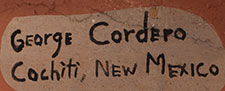 George Cordero
Cochiti, New Mexico